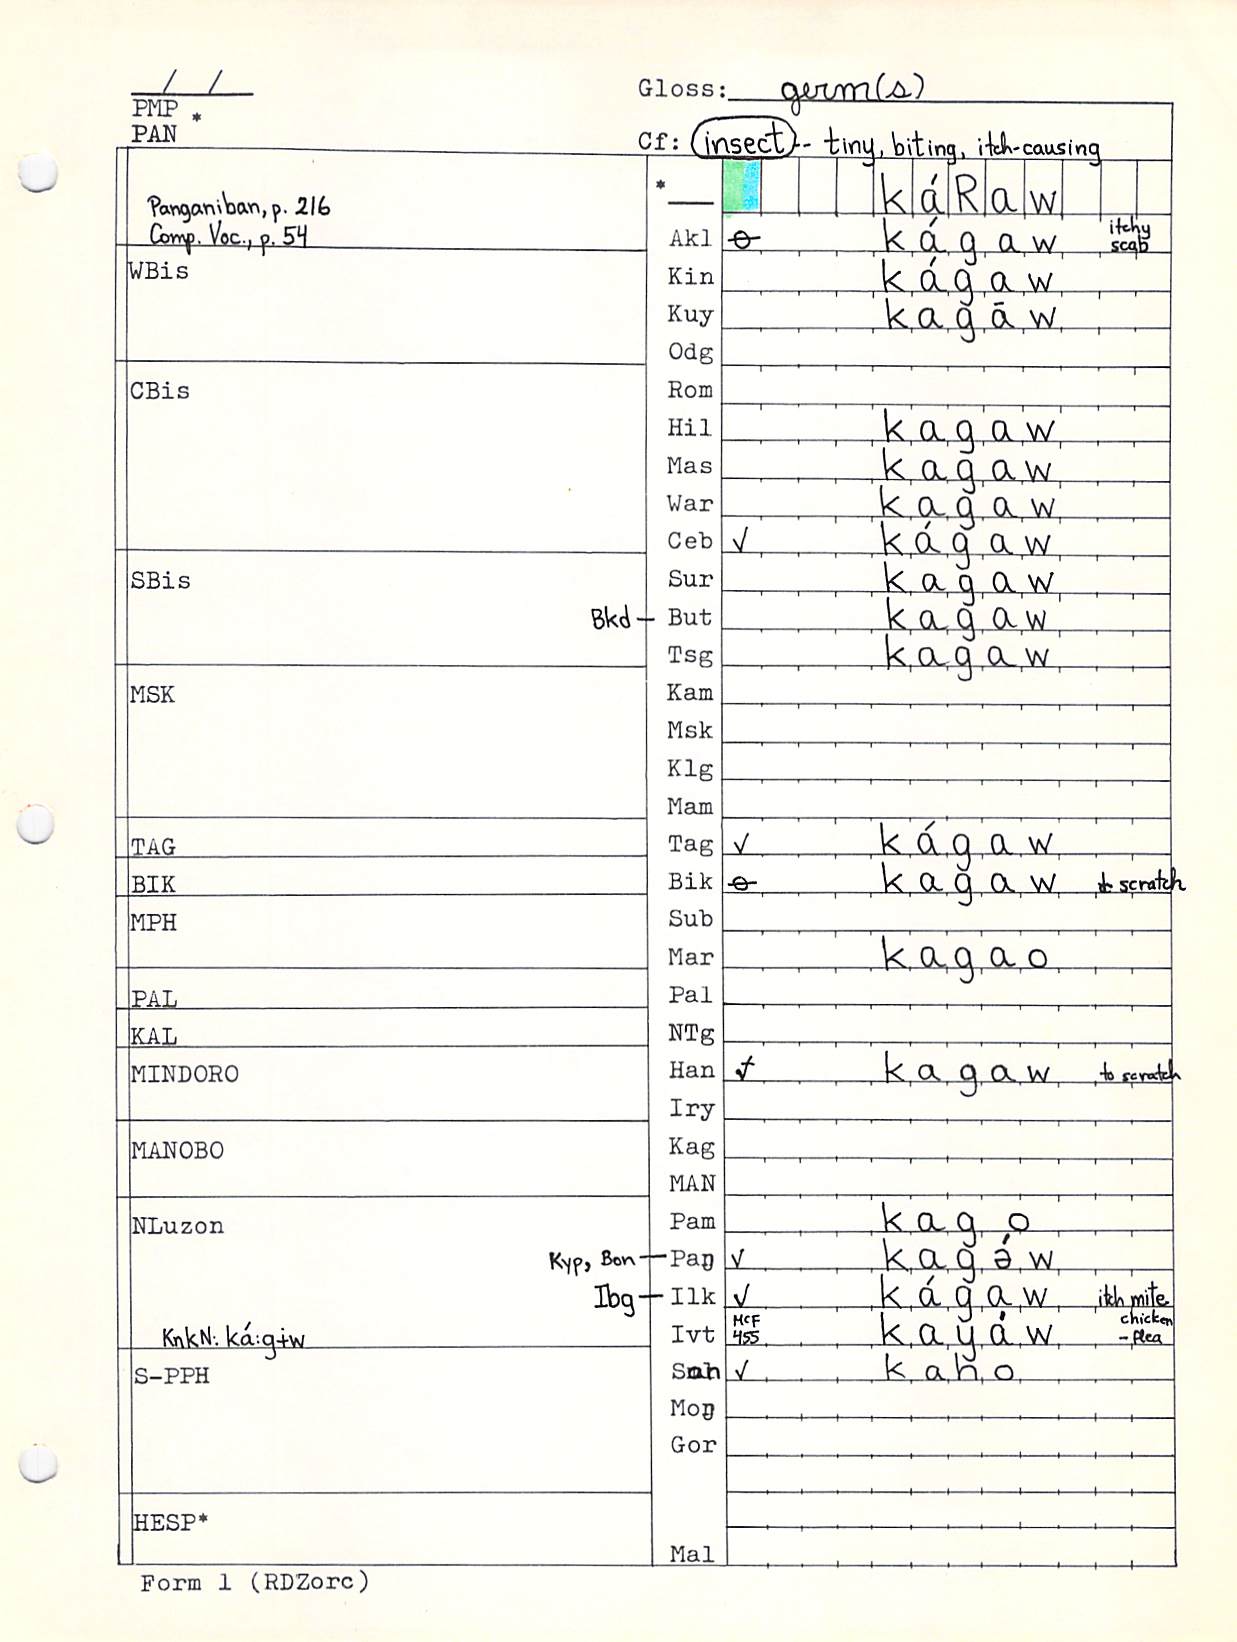 / /
PMP *
PAN
Gloss: germ(s)
Cf: insect -- tiny, biting, itch-causing
Panganiban, p. 216
Comp. Voc., p. 54
* káRaw
Akl ⊖ kágaw itchy scab
WBis
Kin kágaw
Kuy kagāw
Odg
CBis
Rom
Hil kagaw
Mas kagaw
War kagaw
Ceb √ kágaw
SBis
Sur kagaw
Bkd — But kagaw
Tsg kagaw
MSK
Kam
Msk
Klg
Mam
TAG
Tag √ kágaw
BIK
Bik ⊖ kagaw to scratch
MPH
Sub
Mar kagao
PAL
Pal
KAL
NTg
MINDORO
Han √ kagaw to scratch
Iry
MANOBO
Kag
MAN
NLuzon
Pam kago
Kyp, Bon — Paŋ √ kagə́w
Ibg — Ilk √ kágaw itch mite
KnkN: ká:gɨw
Ivt McF 455 kayáw chicken-flea
S-PPH
Snh √ kaho
Moŋ
Gor
HESP*
Mal
Form 1 (RDZorc)